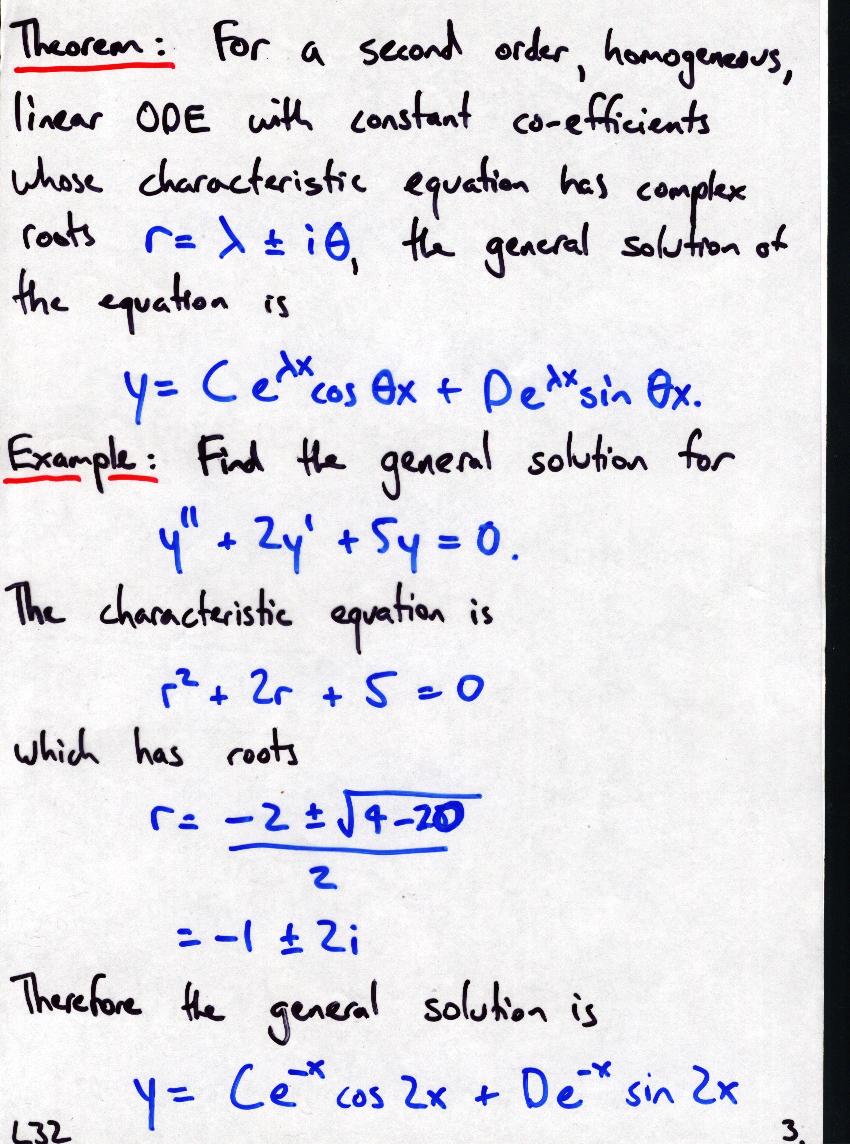 Theorem: For a second order, homogeneous,
linear ODE with constant co-efficients
whose characteristic equation has complex
roots r = λ ± iθ, the general solution of
the equation is
y = Ce^{λx} cos θx + De^{λx} sin θx.
Example: Find the general solution for
y'' + 2y' + 5y = 0.
The characteristic equation is
r² + 2r + 5 = 0
which has roots
r = -2 ± √4-20
2
= -1 ± 2i
Therefore the general solution is
y = Ce^{-x} cos 2x + De^{-x} sin 2x
L32 3.